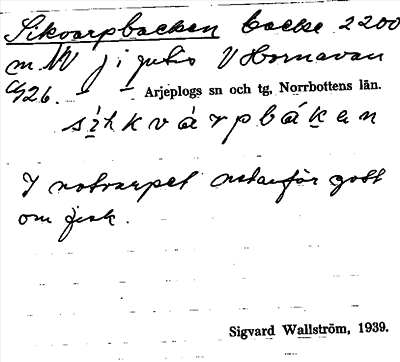 Sikvarpbacken backe 2200
m NV j i V Hornavan
C9126. Arjeplogs sn och tg, Norrbottens län.
sìhkvárpbákan
I notvarpet utanför gott
om fisk.
Sigvard Wallström, 1939.